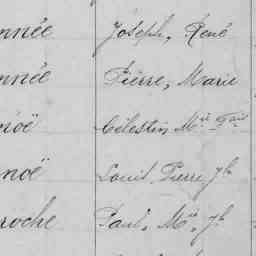 nnée Joseph, René
nnée Pierre, Marie
noë Célestin, M.ie
noë Louis Pierre J.h
roche Paul, M.ie, J.h